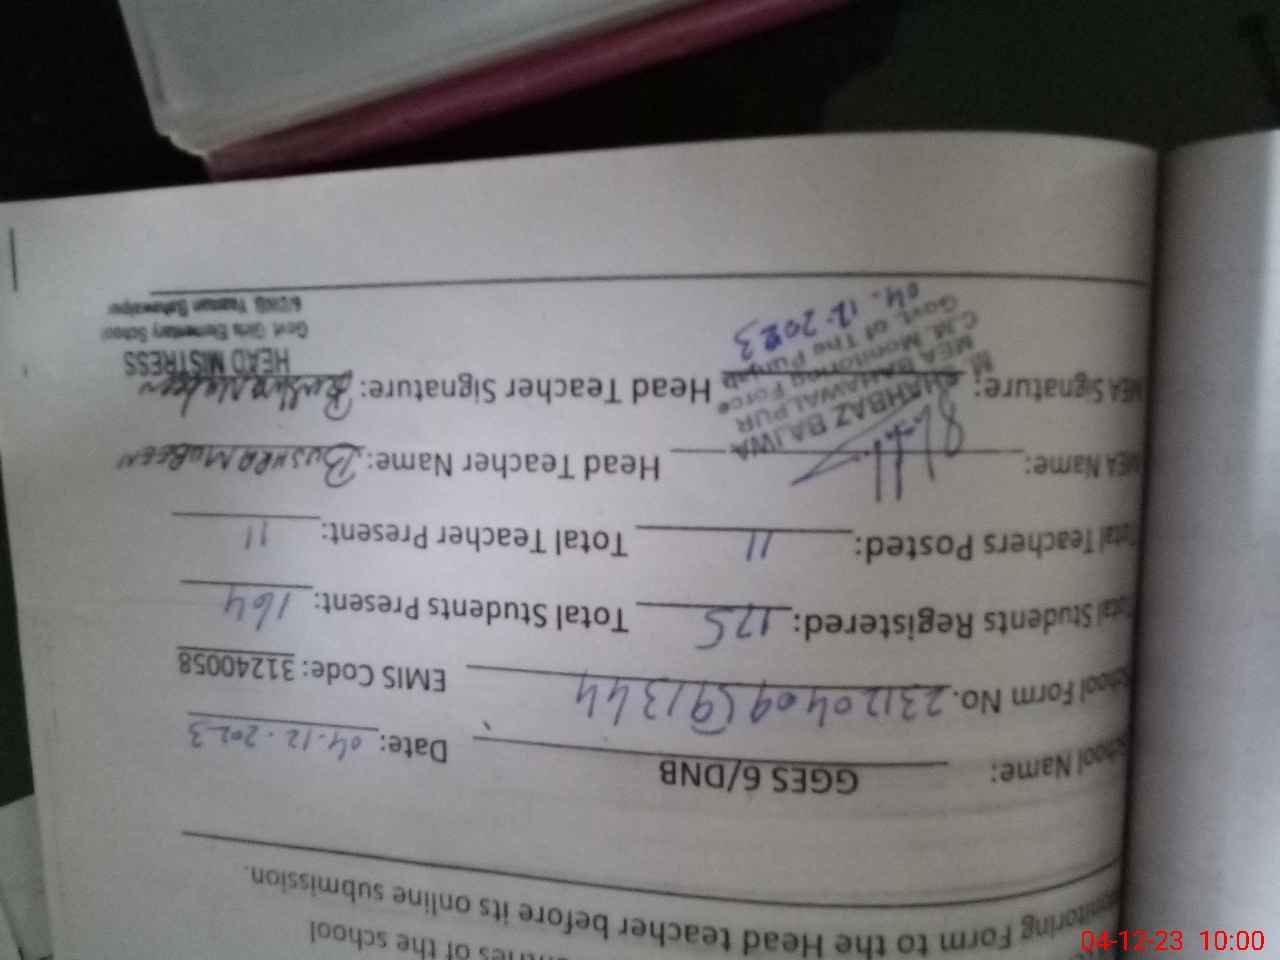 ntries of the school
onitoring Form to the Head teacher before its online submission.
School Name: GGES 6/DNB Date: 04.12.2023
School Form No. 23120409591344 EMIS Code: 31240058
Total Students Registered: 175 Total Students Present: 164
Total Teachers Posted: 11 Total Teacher Present: 11
MEA Name: Head Teacher Name: BUSHRA MUBEEN
MEA Signature: Head Teacher Signature: Bushra Mubeen
SHAHBAZ BAJWA
MEA BAHAWALPUR
C.M. Monitoring Force
Govt. of The Punjab
04.12.2023
HEAD MISTRESS
Govt. Girls Elementary School
6/DNB Yazman Bahawalpur
04-12-23 10:00